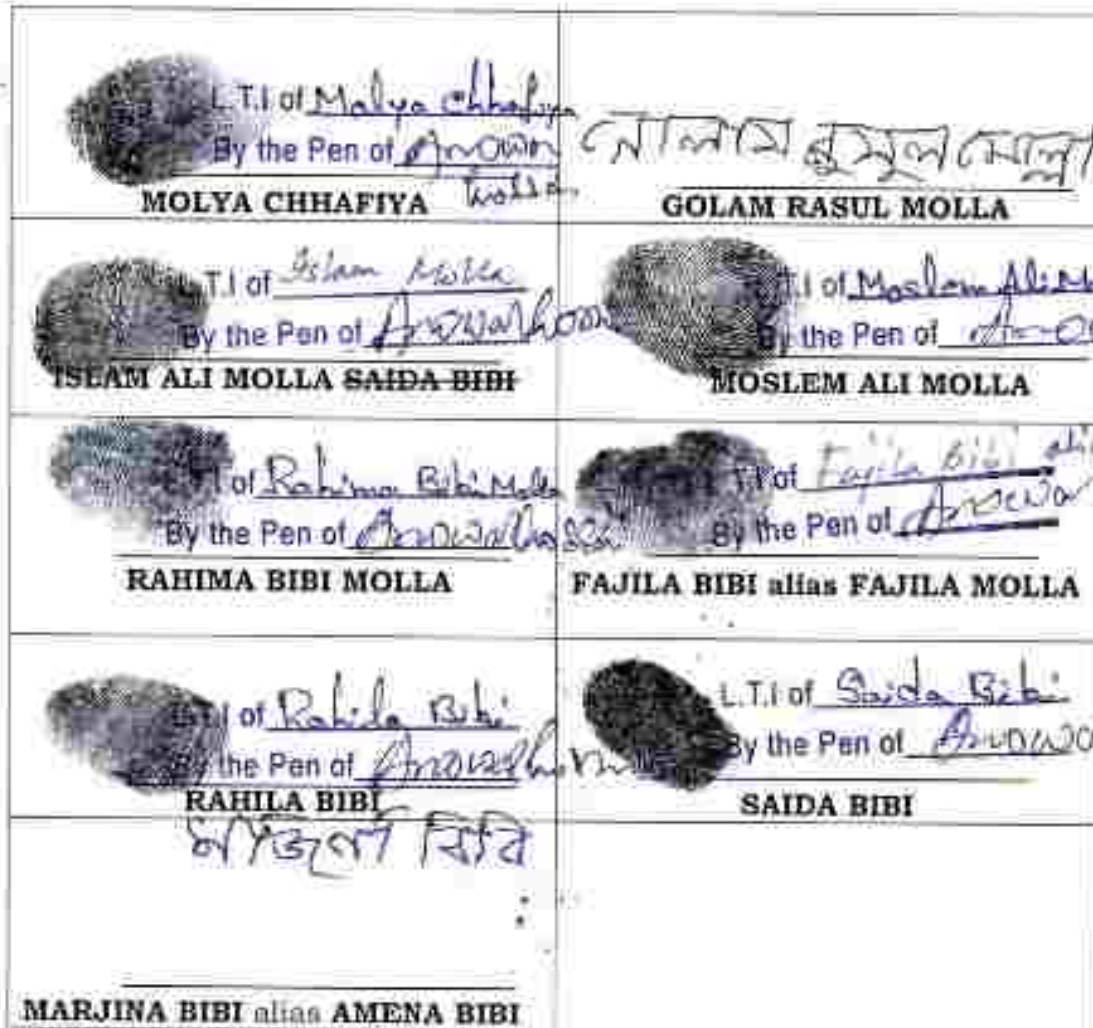 L.T.I of Malya Chhafiya
By the Pen of Anowar
Hossain
MOLYA CHHAFIYA
গোলাম রসুল মোল্লা
GOLAM RASUL MOLLA
L.T.I of Islam Molla
By the Pen of Anowarhossain
ISLAM ALI MOLLA SAIDA BIBI
T.I of Moslem Ali M
By the Pen of Ano
MOSLEM ALI MOLLA
L.T.I of Rahima Bibi Molla
By the Pen of Anowarhossain
RAHIMA BIBI MOLLA
T.I of Fajila Bibi ali
By the Pen of Anowar
FAJILA BIBI alias FAJILA MOLLA
L.T.I of Rahila Bibi
By the Pen of Anowarhossain
RAHILA BIBI
L.T.I of Saida Bibi
By the Pen of Anowa
SAIDA BIBI
মর্জিনা বিবি
MARJINA BIBI alias AMENA BIBI